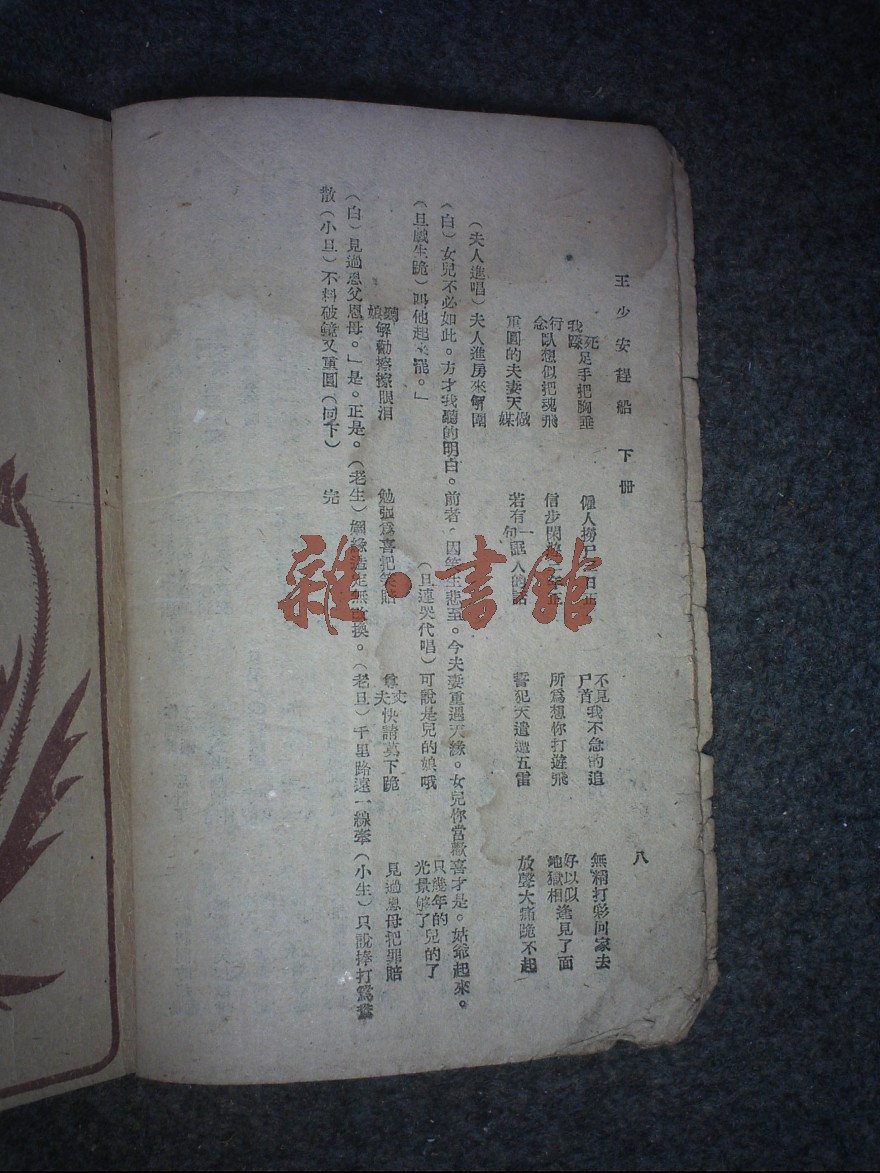 王少安趕船 下冊 八
我踩死足手把胸垂 僱人撈尸 不見尸首我不急的追 無精打彩回家去
行臥想似把魂飛 信步閑 所爲想你打遊飛 好以似地獄相逢見了面
重圓的夫妻天做媒 若有一句誆人的話 誓犯天遣遭五雷 放聲大痛跪不起
(夫人進唱)夫人進房來解圍
(白)女兒不必如此。方才我聽的明白。前者 因 生悲至。今夫妻重過天緣。女兒你當歡喜才是。姑爺起來。
(旦戲生跪)叫他起來罷。」 (旦連哭代唱)可說是兒的娘哦 只幾年的光景够了兒的了
聽娘解勸擦擦眼泪 勉强爲喜把笑賠 丈夫快請莫下跪 見過恩母把罪賠
(白)見過恩父恩母。」是。正是。(老生)姻緣 定無改換。(老旦)千里路遠一線牽(小生)只說棒打鴛鴦
散(小旦)不料破鏡又重圓(同下) 完
雜·書館